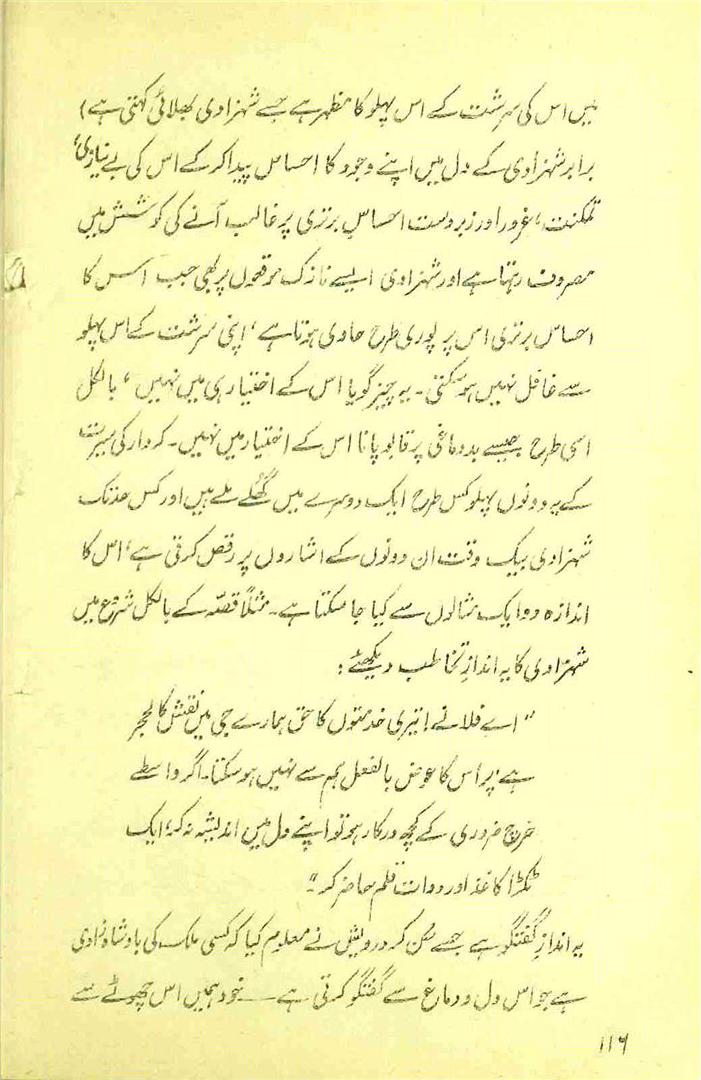 میں اس کی سرشت کے اس پہلو کا مظہر ہے جسے شہزادی بھلائی کہتی ہے)
برابر شہزادی کے دل میں اپنے وجود کا احساس پیدا کر کے اس کی بے نیازی،
تمکنت، غرور اور زبردست احساسِ برتری پر غالب آنے کی کوشش میں
مصروف رہتا ہے اور شہزادی ایسے نازک موقعوں پر بھی جب اس کا
احساس برتری اس پر پوری طرح حاوی ہوتا ہے، اپنی سرشت کے اس پہلو
سے غافل نہیں ہو سکتی۔ یہ چیز گویا اس کے اختیار ہی میں نہیں، بالکل
اسی طرح جیسے بددماغی پر قابو پانا اس کے اختیار میں نہیں۔ کردار کی سیرت
کے یہ دونوں پہلو کس طرح ایک دوسرے میں گھلے ملے ہیں اور کس حد تک
شہزادی بیک وقت ان دونوں کے اشاروں پر رقص کرتی ہے، اس کا
اندازہ دو ایک مثالوں سے کیا جا سکتا ہے۔ مثلاً قصّہ کے بالکل شروع میں
شہزادی کا یہ اندازِ تخاطب دیکھئے:
"اے فلانے! تیری خدمتوں کا حق ہمارے جی میں نقش کالحجر
ہے، پر اس کا عوض بالفعل ہم سے نہیں ہو سکتا۔ اگر واسطے
خرچ ضروری کے کچھ درکار ہو تو اپنے دل میں اندیشہ نہ کر، ایک
ٹکڑا کاغذ اور دوات قلم حاضر کر۔"
یہ اندازِ گفتگو ہے جسے سُن کر درویش نے معلوم کیا کہ کسی ملک کی بادشاہ زادی
ہے جو اس دل و دماغ سے گفتگو کرتی ہے — خود ہمیں اس چھوٹے سے
۱۱۶